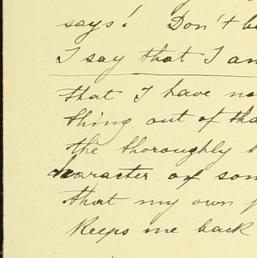 says! Don't b
I say that I am
that I have no
thing out of tha
the thoroughly
character of som
that my own
keeps me back